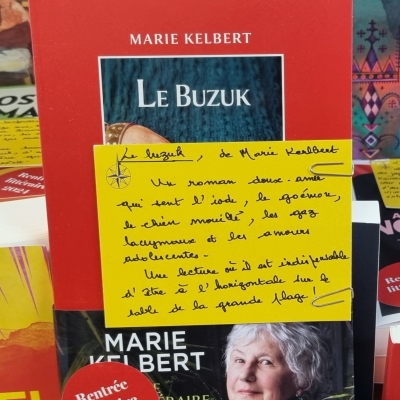 MARIE KELBERT
LE BUZUK
Le buzuk, de Marie Karlbert
Un roman doux-amer
qui sent l'iode, le goémon,
le chien mouillé, les gaz
lacrymaux et les amours
adolescentes.
Une lecture où il est indispensable
d'être à l'horizontale sur le
sable de la grande plage!
MARIE
KELBERT
Rentrée
Rentrée
littéraire
2024